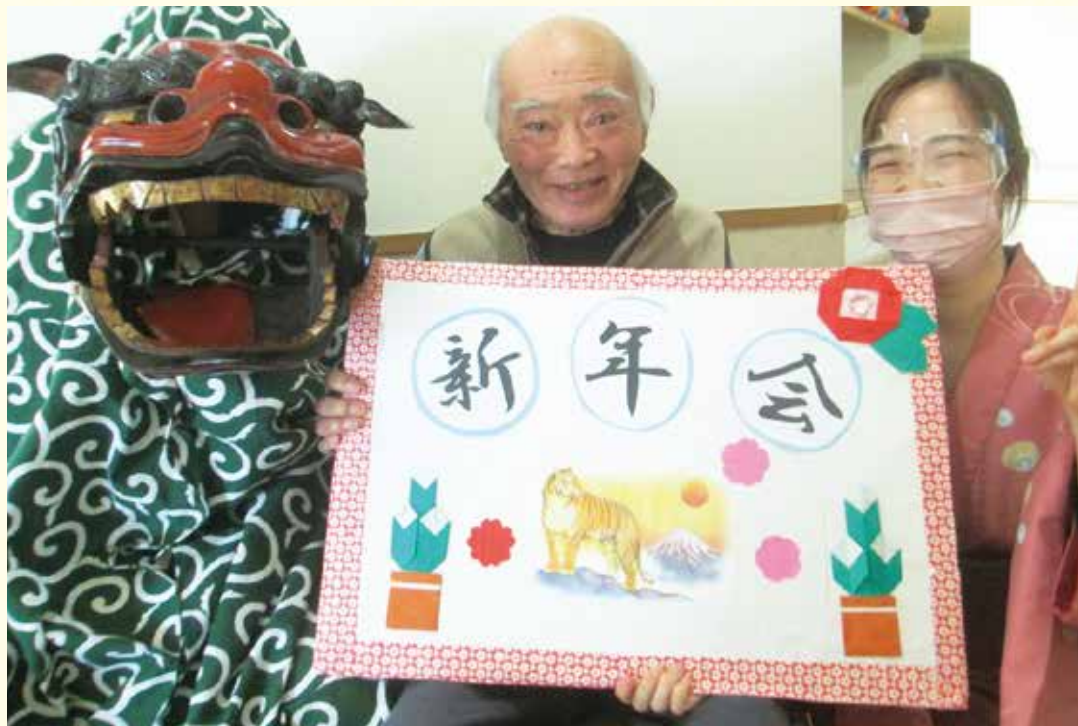 新年会